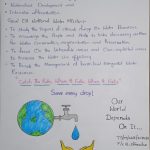 Watershed Development and
Intensive Afforestation.
Goal Of National Water Mission
To study the Impact of climate change on Water Resources
To encourage the People and State to take necessary action
for Water Conservation, augmentation and Preservation.
To focus on the vulnerable areas and Over-exploited areas.
To Increase the Water use efficiency
To Boost the Management of basin level Integrated Water
Resources.
Catch the Rain, Where It Falls, When It Falls"
Save every drop!
Our
World
Depends
On It...